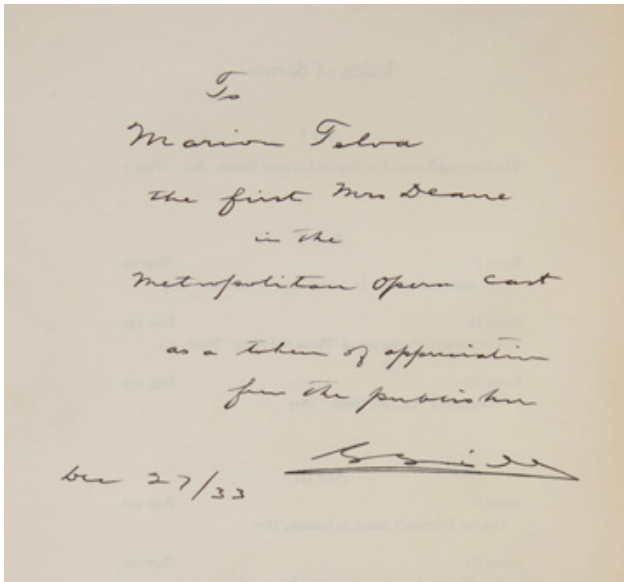 To
Marion Telva
the first Mrs Deane
in the
Metropolitan Opera cast
as a token of appreciation
from the publisher
Dec 27/33